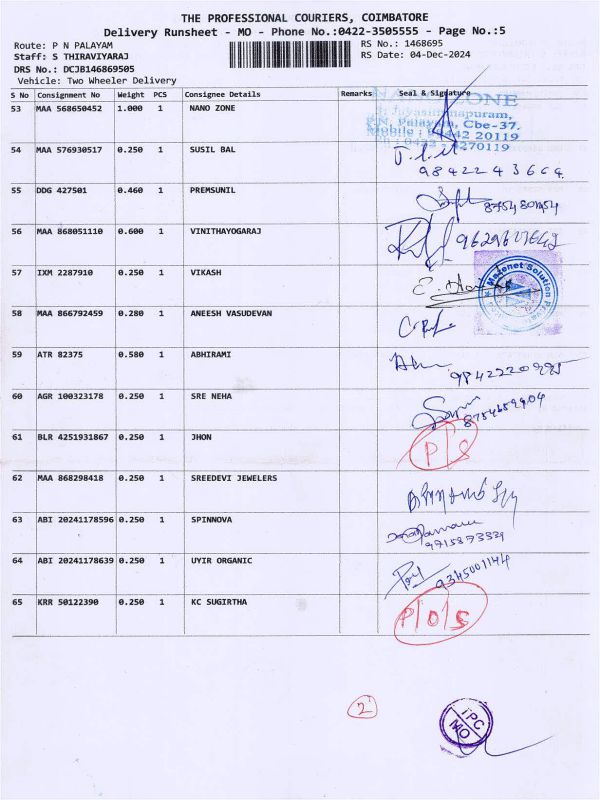 THE PROFESSIONAL COURIERS, COIMBATORE
Delivery Runsheet - MO - Phone No.:0422-3505555 - Page No.:5
Route: P N PALAYAM RS No.: 1468695
Staff: S THIRAVIYARAJ RS Date: 04-Dec-2024
DRS No.: DCJB146869505
Vehicle: Two Wheeler Delivery
S No Consignment No Weight PCS Consignee Details Remarks Seal & Signature
53 MAA 568650452 1.000 1 NANO ZONE
NANO ZONE
P.N. Palayam, Cbe-37.
54 MAA 576930517 0.250 1 SUSIL BAL
9842243664
55 DDG 427501 0.460 1 PREMSUNIL
56 MAA 868051110 0.600 1 VINITHAYOGARAJ
57 IXM 2287910 0.250 1 VIKASH
Mazenet Solution
58 MAA 866792459 0.280 1 ANEESH VASUDEVAN
59 ATR 82375 0.580 1 ABHIRAMI
60 AGR 100323178 0.250 1 SRE NEHA
8754659904
61 BLR 4251931867 0.250 1 JHON
P/S
62 MAA 868298418 0.250 1 SREEDEVI JEWELERS
63 ABI 20241178596 0.250 1 SPINNOVA
64 ABI 20241178639 0.250 1 UYIR ORGANIC
9345001144
65 KRR 50122390 0.250 1 KC SUGIRTHA
P/O/S
2
TPC
MO